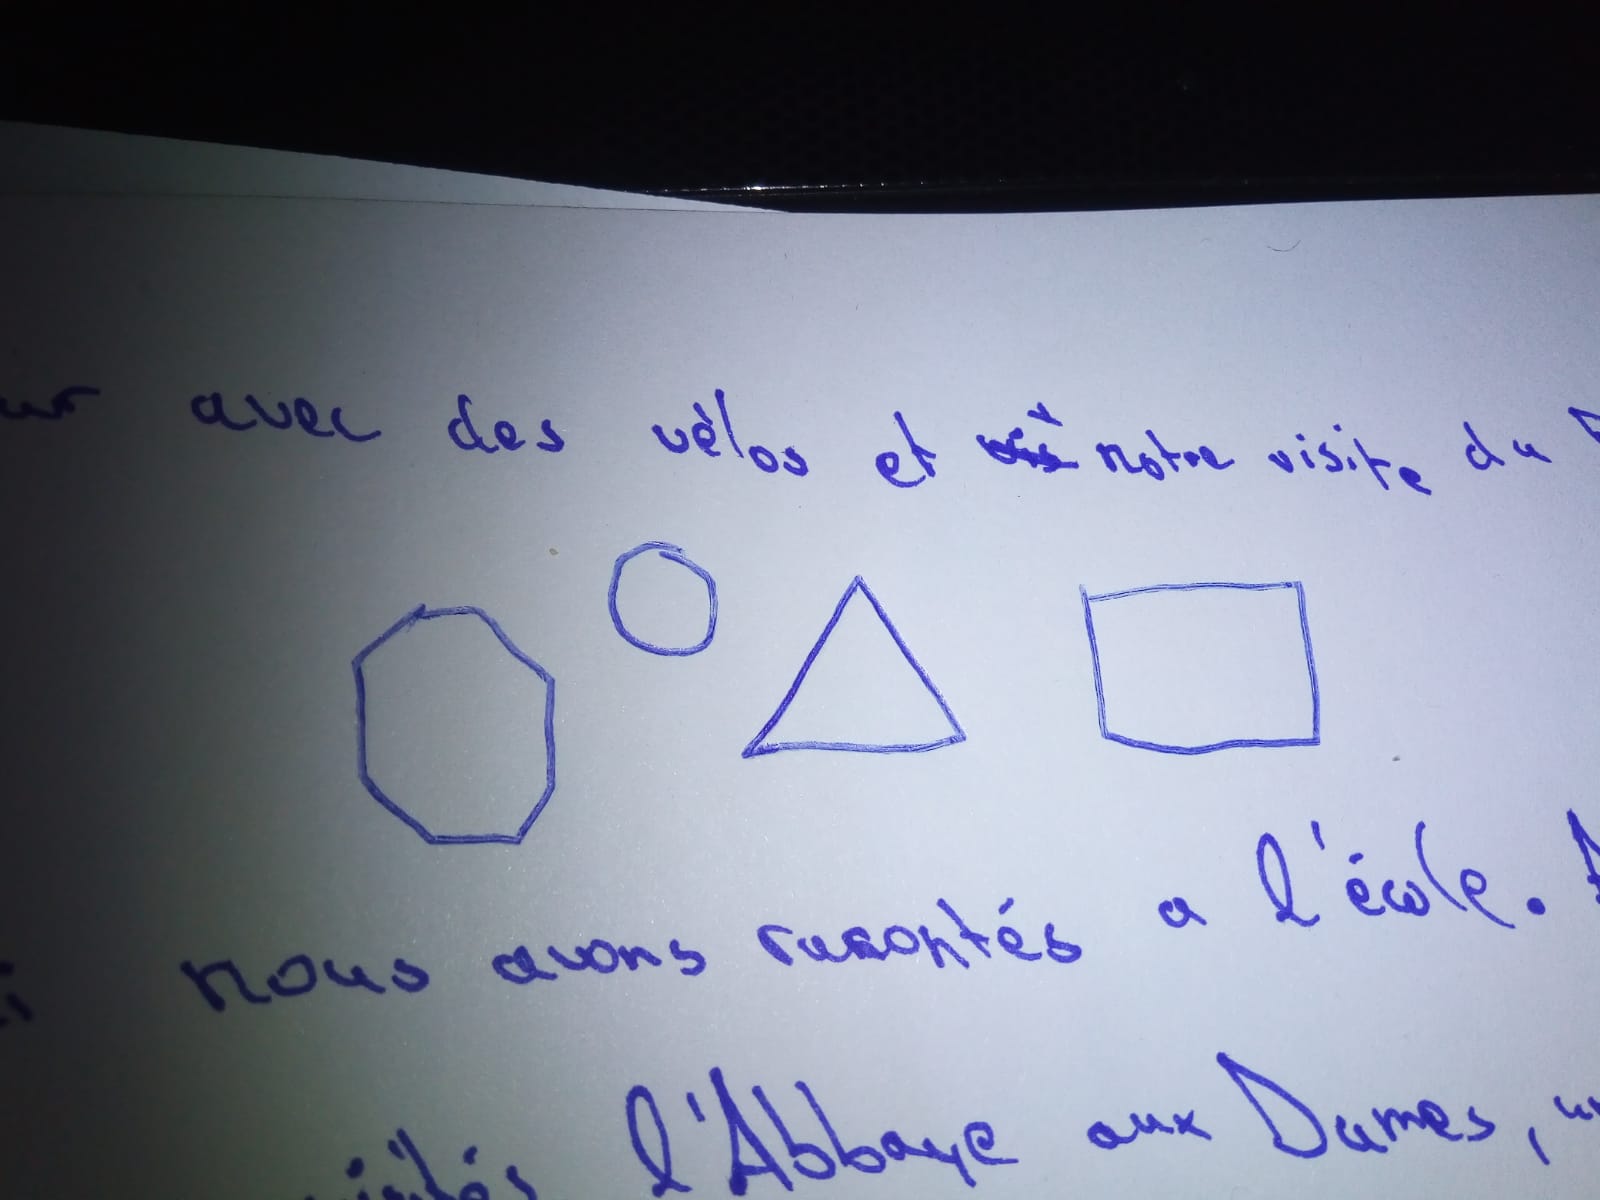 avec des vélos et notre visite du
nous avons racontés a l'école.
visités l'Abbaye aux Dames,